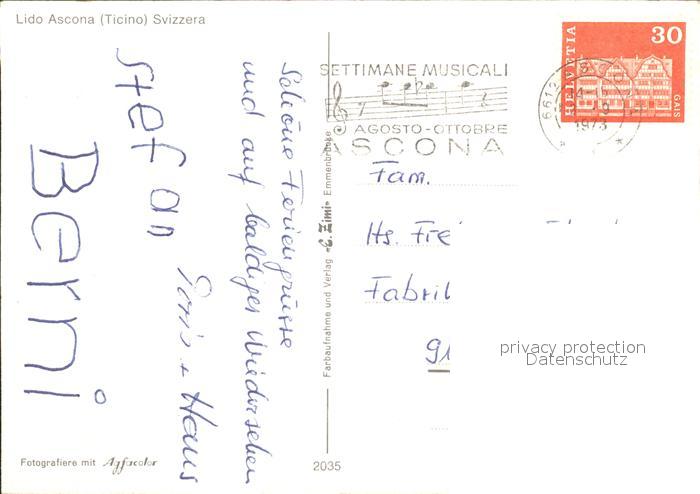 Lido Ascona (Ticino) Svizzera
Schöne Feriengrüsse
und auf baldiges Wiedersehen
Doris + Hans
Stefan
Berni
Fotografiere mit Agfacolor
Farbaufnahme und Verlag «E. Zimi» Emmenbrücke
2035
SETTIMANE MUSICALI
AGOSTO - OTTOBRE
ASCONA
6612
1973
HELVETIA
30
GAIS
Fam.
Hs. Fre
Fabri
91
privacy protection
Datenschutz